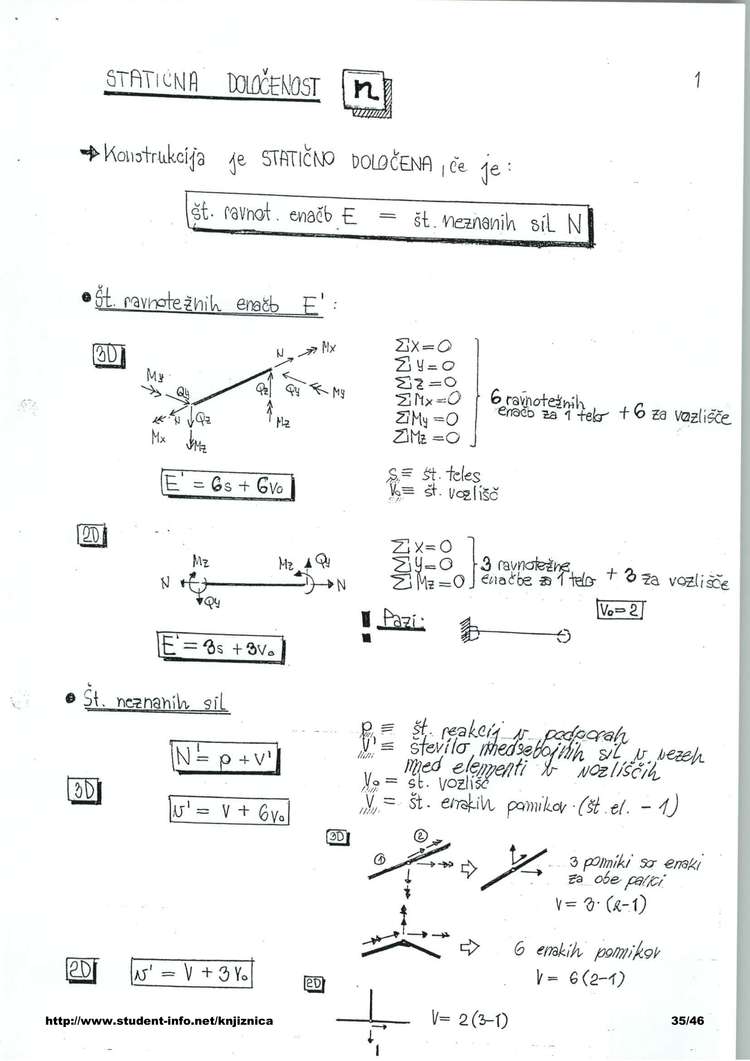 STATIČNA DOLOČENOST n
1
→ Konstrukcija je STATIČNO DOLOČENA, če je:
št. ravnot. enačb E = št. neznanih sil N
• Št. ravnotežnih enačb E':
3D
N Mx
My Qy
Qz Qy My
N Qz
Mx Mz
Mz
ΣX=0
ΣY=0
ΣZ=0
ΣMx=0
ΣMy=0
ΣMz=0
6 ravnotežnih
enačb za 1 telo + 6 za vozlišče
E' = 6s + 6V₀
s ≡ št. teles
V₀ ≡ št. vozlišč
2D
Mz Mz Qy
N N
Qy
ΣX=0
ΣY=0
ΣMz=0
3 ravnotežne
enačbe za 1 telo + 3 za vozlišče
! Pazi:
V₀=2
E' = 3s + 3V₀
• Št. neznanih sil
N' = p + V'
p ≡ št. reakcij v podporah
V' ≡ število medsebojnih sil v vezeh
med elementi v vozliščih
V₀ = št. vozlišč
V = št. enakih pomikov · (št. el. - 1)
3D
v' = V + 6V₀
3D
1 2
3 pomiki so enaki
za obe palici
V = 3·(2-1)
6 enakih pomikov
V = 6(2-1)
2D
v' = V + 3V₀
2D
V = 2(3-1)
http://www.student-info.net/knjiznica
35/46